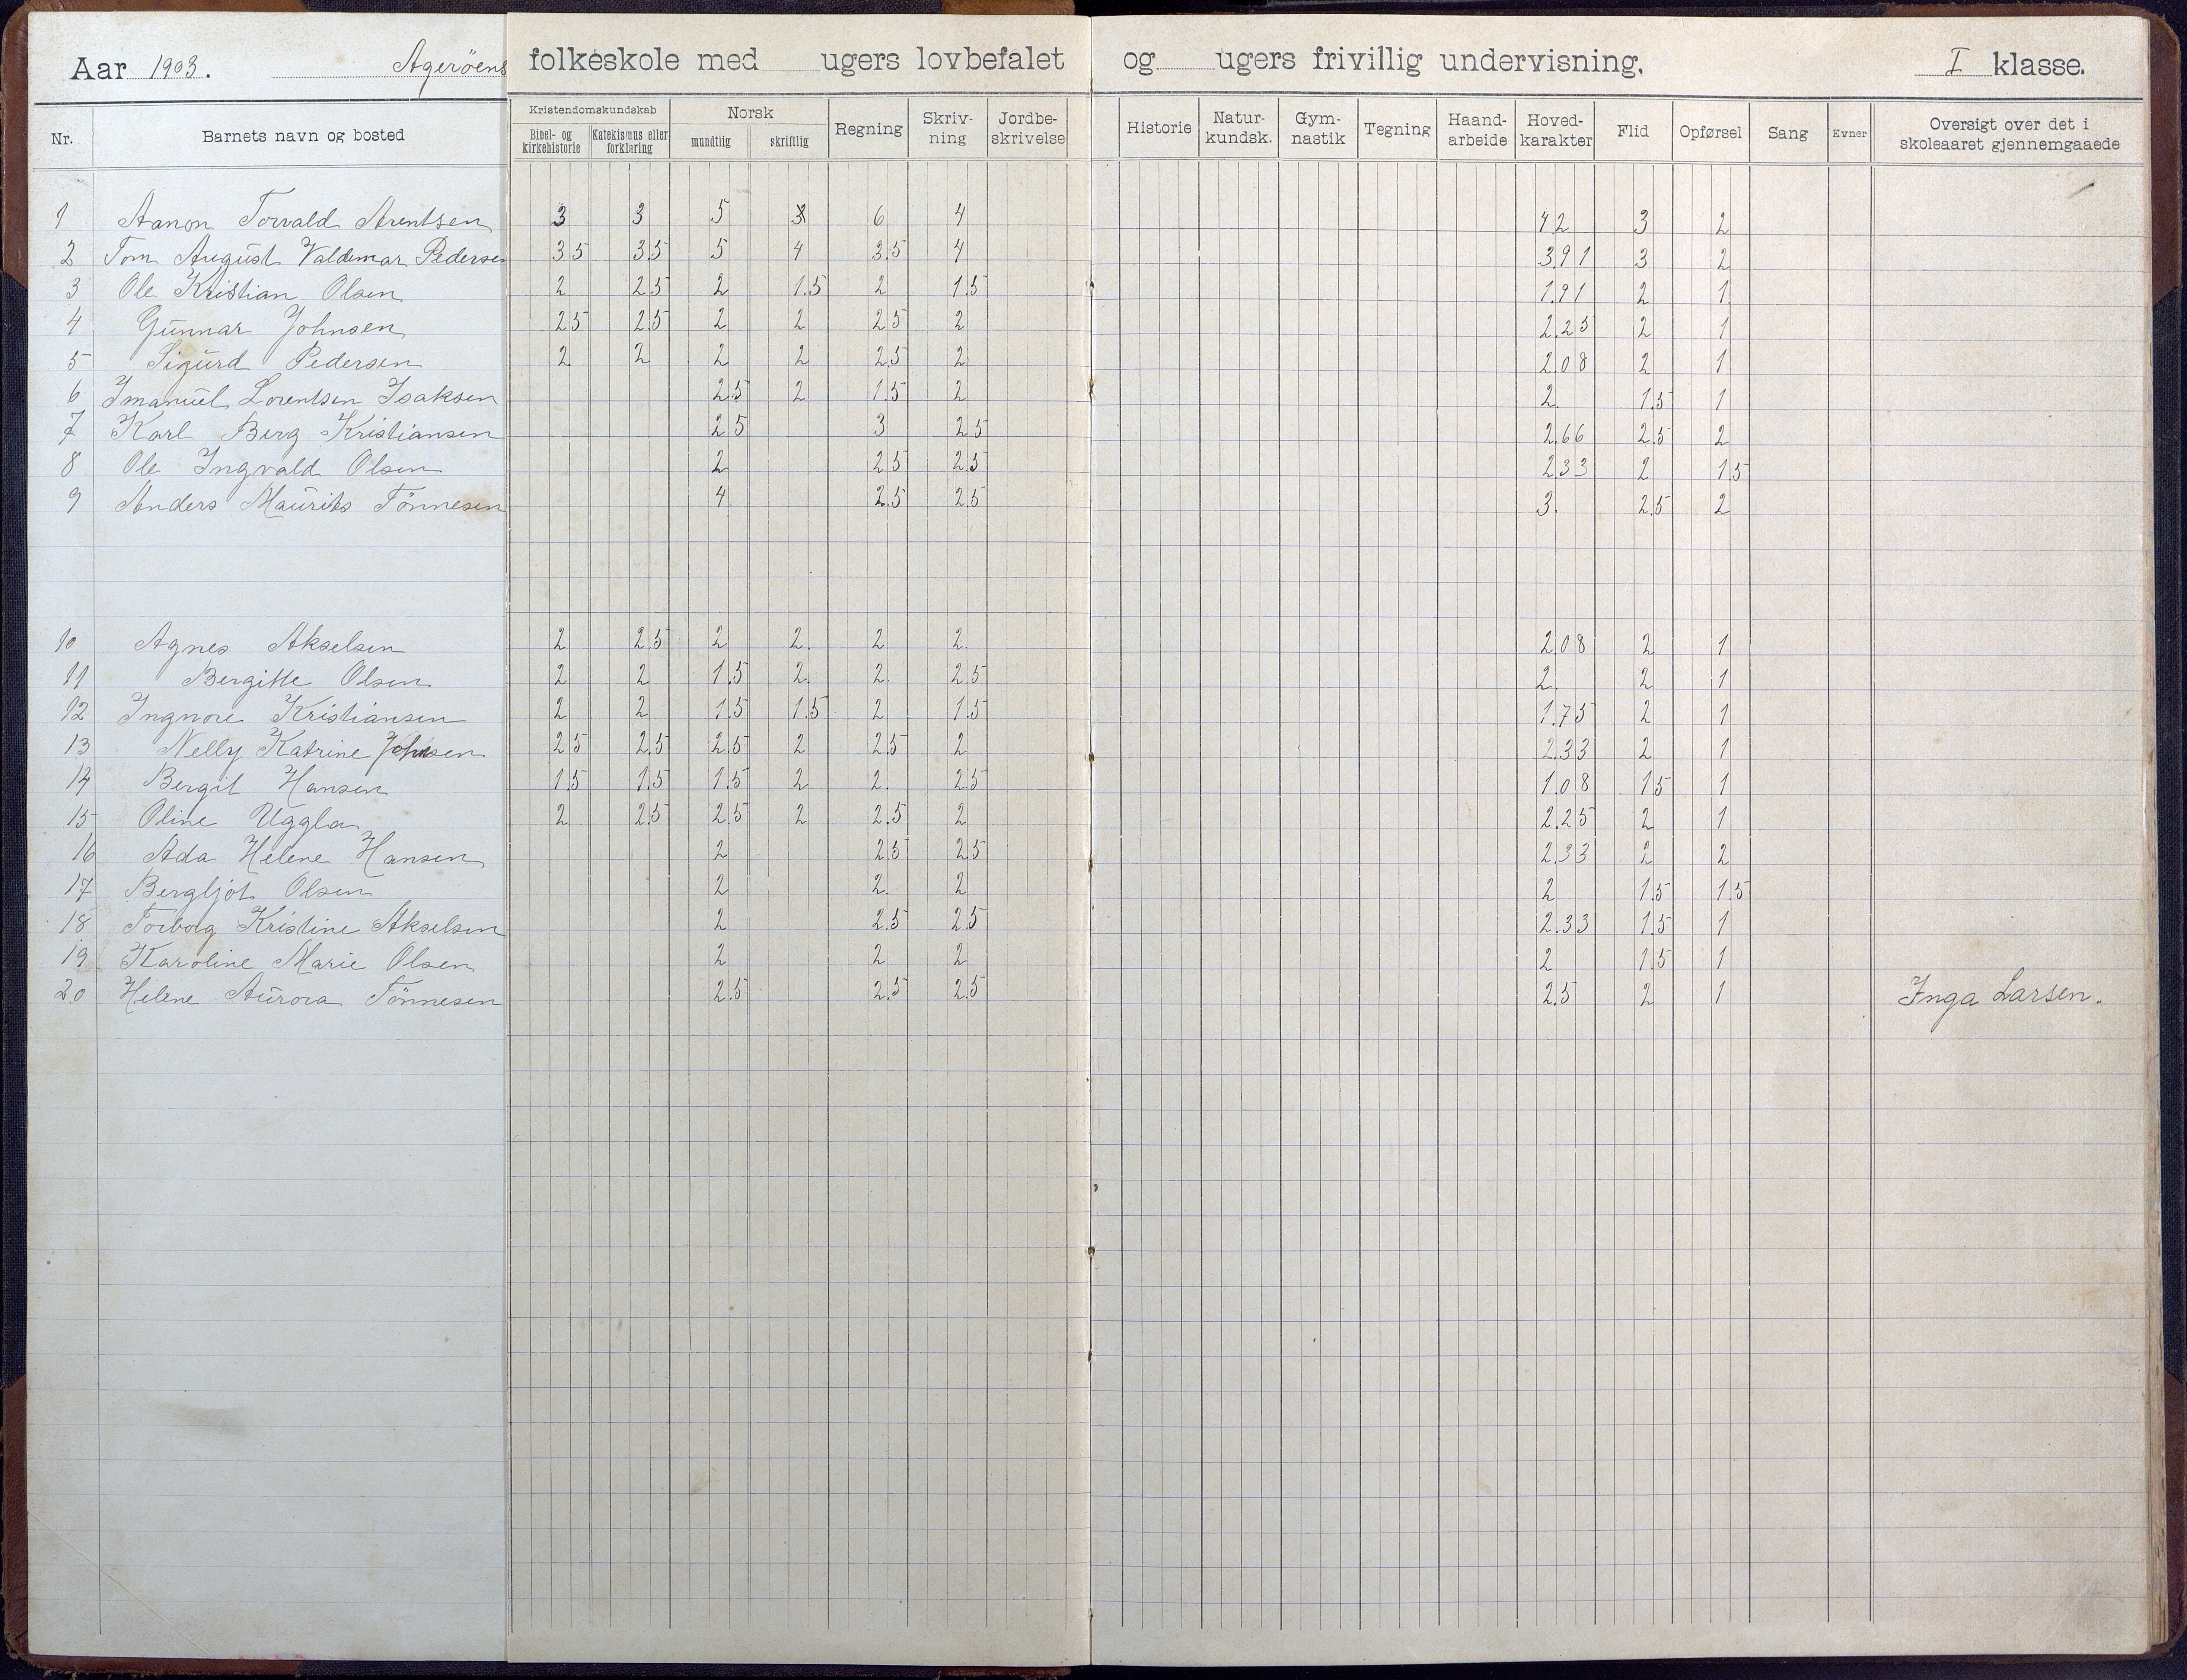 Aar 1903. Ageröens folkeskole med ugers lovbefalet og ugers frivillig undervisning. I klasse.
Nr. Barnets navn og bosted Kristendomskundskab Bibel- og kirkehistorie Katekismus eller forklaring Norsk mundtlig skriftlig Regning Skriv-ning Jordbe-skrivelse Historie Natur-kundsk. Gym-nastik Tegning Haand-arbeide Hoved-karakter Flid Opførsel Sang Evner Oversigt over det i skoleaaret gjennemgaaede
1 Aanon Torvald Arentsen 3 3 5 6 4 4.2 3 2
2 Tom August Valdemar Pedersen 3.5 3.5 5 4 3.5 4 3.91 3 2
3 Ole Kristian Olsen 2 2.5 2 1.5 2 1.5 1.91 2 1
4 Gunnar Johnsen 2.5 2.5 2 2 2.5 2 2.25 2 1
5 Sigurd Pedersen 2 2 2 2 2.5 2 2.08 2 1
6 Imanuel Lorentsen Isaksen 2.5 2 1.5 2 2. 1.5 1
7 Karl Berg Kristiansen 2.5 3 2.5 2.66 2.5 2
8 Ole Ingvald Olsen 2 2.5 2.5 2.33 2 1.5
9 Anders Maurits Tönnesen 4 2.5 2.5 3. 2.5 2
10 Agnes Akselsen 2 2.5 2 2. 2 2. 2.08 2 1
11 Bergitte Olsen 2 2 1.5 2. 2. 2.5 2. 2 1
12 Ingnore Kristiansen 2 2 1.5 1.5 2 1.5 1.75 2 1
13 Nelly Katrine Johnsen 2.5 2.5 2.5 2 2.5 2 2.33 2 1
14 Bergit Hansen 1.5 1.5 1.5 2 2. 2.5 1.08 1.5 1
15 Oline Uggla 2 2.5 2.5 2 2.5 2 2.25 2 1
16 Ada Helene Hansen 2 2.5 2.5 2.33 2 2
17 Bergljot Olsen 2 2. 2 2 1.5 1.5
18 Torborg Kristine Akselsen 2 2.5 2.5 2.33 1.5 1
19 Karoline Marie Olsen 2 2 2 2 1.5 1
20 Helene Aurora Tönnesen 2.5 2.5 2.5 2.5 2 1 Inga Larsen.